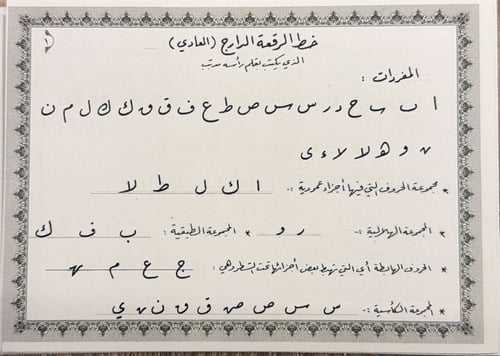 خط الرقعة الدارج (العادي)
١
الذي يكتب بقلم رأسه مدبب
المفردات :
ا ب س ح د ر س س ص ط ع ف ق ق ك ك ل م ن
ن و هـ لا لا ء ى
* مجموعة الحروف التي فيها أجزاء عمودية :- ا ك ل ط لا
* المجموعة الهلالية :- ر و * المجموعة الطبقية : ب ف ك
* الحروف الهابطة أي التي تهبط بعض أجزائها تحت السطر وهي : ج ع م هـ
* المجموعة الكأسية :- س س ص ص ق ق ن ن ي